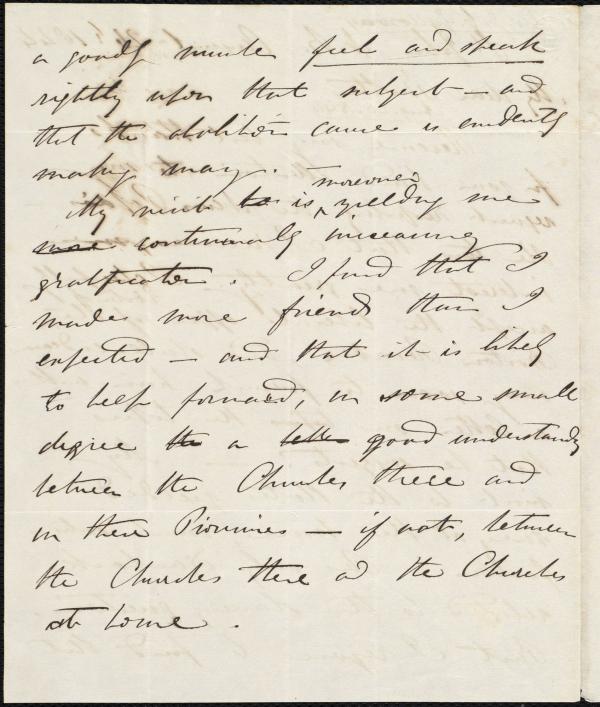 a goodly number feel and speak
rightly upon that subject — and
that the abolition cause is evidently
making way.
moreover
My visit to is ^ yielding me
more continually increasing
gratification. I find that I
made more friends than I
expected — and that it is likely
to help forward, in some small
degree the a better good understandg
between the Churches there and
in these Provinces — if not, between
the Churches there and the Churches
at home.